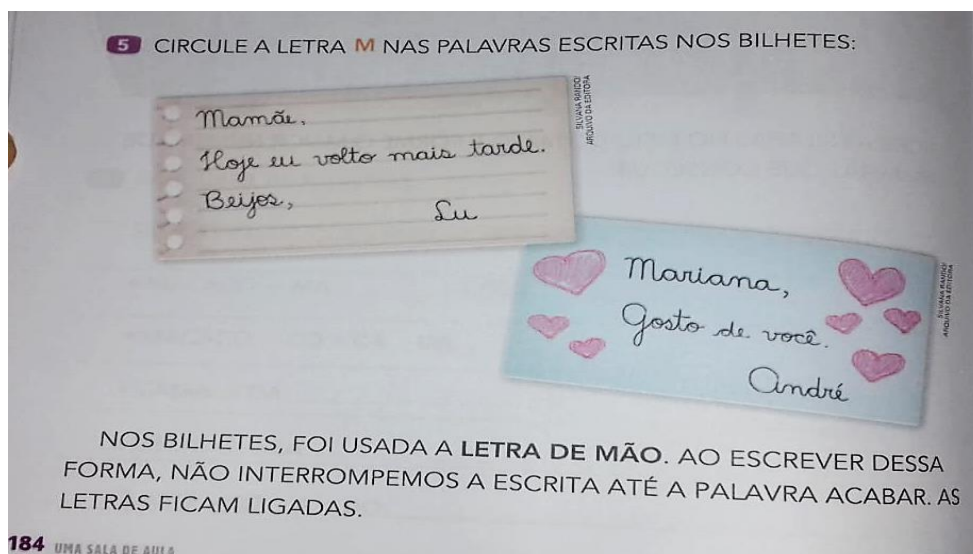 5 CIRCULE A LETRA M NAS PALAVRAS ESCRITAS NOS BILHETES:
Mamãe,
Hoje eu volto mais tarde.
Beijos,
Lu
SILVANA RANDO/
ARQUIVO DA EDITORA
Mariana,
Gosto de você.
André
SILVANA RANDO/
ARQUIVO DA EDITORA
NOS BILHETES, FOI USADA A LETRA DE MÃO. AO ESCREVER DESSA
FORMA, NÃO INTERROMPEMOS A ESCRITA ATÉ A PALAVRA ACABAR. AS
LETRAS FICAM LIGADAS.
184 UMA SALA DE AULA